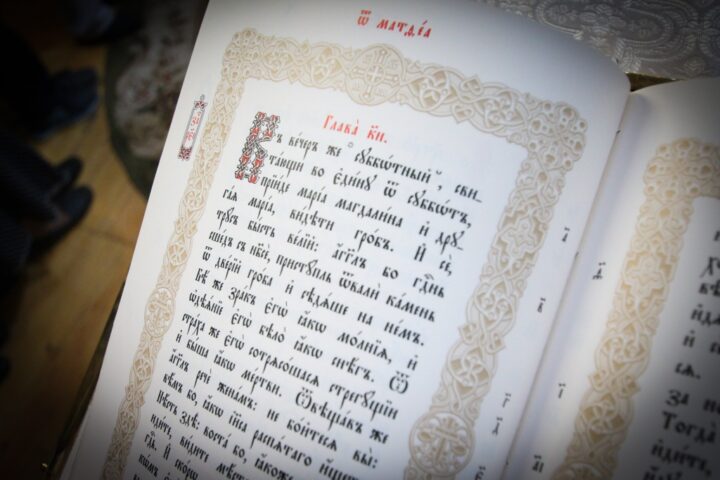 Ѿ матѳе́а
Глава̀ к҃и.
Въ ве́черъ же сꙋббѡ́тный, сви-
та́ющи во є҆ди́нꙋ ѿ сꙋббѡ́тъ,
прїи́де марі́а магдали́на и҆ дрꙋ-
га́ѧ марі́а, ви́дѣти гро́бъ. И҆ сѐ,
трꙋ́съ бы́сть ве́лїй: а҆́гг҃лъ бо гдⷭ҇нь
сше́дъ съ нб҃сѐ, пристꙋ́пль ѿвалѝ ка́мень
ѿ две́рїй гро́ба и҆ сѣдѧ́ше на не́мъ.
Бѣ́ же зра́къ є҆гѡ̀ ꙗ҆́кѡ мо́лнїѧ, и҆
ѡ҆дѣѧ́нїе є҆гѡ̀ бѣло̀ ꙗ҆́кѡ снѣ́гъ. Ѿ
стра́ха же є҆гѡ̀ сотрѧсо́шасѧ стрегꙋ́щїи
и҆ бы́ша ꙗ҆́кѡ ме́ртви. Ѿвѣща́въ же
а҆́гг҃лъ речѐ жена́мъ: не бо́йтесѧ вы̀:
вѣ́мъ бо, ꙗ҆́кѡ і҆и҃са распѧ́таго и҆́щете.
Нѣ́сть здѣ̀: воста́ бо, ꙗ҆́коже
ви́дите мѣ́сто
И҆ ско́рѡ
За не
Тогда̀